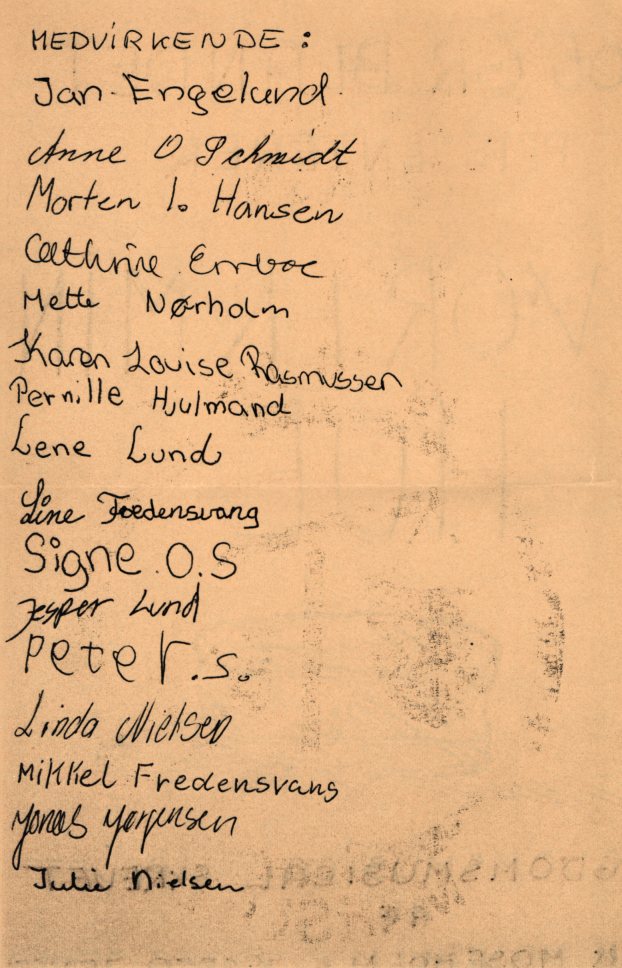 MEDVIRKENDE :
Jan Engelund
Anne O Schmidt
Morten I. Hansen
Cathrine Errboe
Mette Nørholm
Karen Louise Rasmussen
Pernille Hjulmand
Lene Lund
Line Fredensvang
Signe.O.S
Jesper Lund
Peter.s.
Linda Nielsen
Mikkel Fredensvang
Jonas Jørgensen
Julie Nielsen